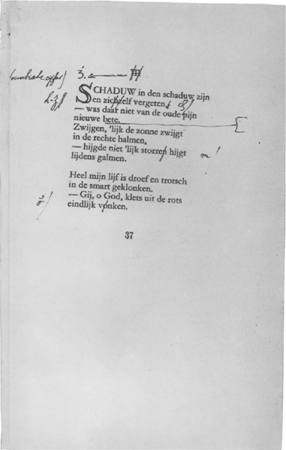 3.
SCHADUW in den schaduw zijn
en zichzelf vergeten,
— was daar niet van de oude pijn
nieuwe bete.
Zwijgen, 'lijk de zonne zwijgt
in de rechte halmen,
— hijgde niet 'lijk storren hijgt
lijdens galmen.
Heel mijn lijf is droef en trotsch
in de smart geklonken.
— Gij, o God, klets uit de rots
eindlijk vonken.
37